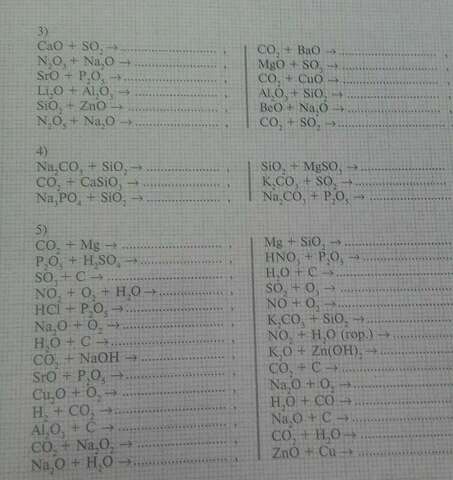 3)
CaO + SO₂ → ........................ ,
N₂O₃ + Na₂O → ........................ ,
SrO + P₂O₅ → ........................ ,
Li₂O + Al₂O₃ → ........................ ,
SiO₂ + ZnO → ........................ ,
N₂O₅ + Na₂O → ........................ ,
CO₂ + BaO → ........................
MgO + SO₃ → ........................
CO₂ + CuO → ........................
Al₂O₃ + SiO₂ → ........................
BeO + Na₂O → ........................
CO₂ + SO₂ → ........................
4)
Na₂CO₃ + SiO₂ → ........................ ,
CO₂ + CaSiO₃ → ........................ ,
Na₃PO₄ + SiO₂ → ........................ ,
SiO₂ + MgSO₃ → ........................
K₂CO₃ + SO₂ → ........................
Na₂CO₃ + P₂O₅ → ........................
5)
CO₂ + Mg → ........................ ,
P₂O₅ + H₂SO₄ → ........................ ,
SO₂ + C → ........................ ,
NO₂ + O₂ + H₂O → ........................ ,
HCl + P₂O₅ → ........................ ,
Na₂O + O₂ → ........................ ,
H₂O + C → ........................ ,
CO₂ + NaOH → ........................ ,
SrO + P₂O₅ → ........................ ,
Cu₂O + O₂ → ........................ ,
H₂ + CO₂ → ........................ ,
Al₂O₃ + C → ........................ ,
CO₂ + Na₂O₂ → ........................ ,
Na₂O + H₂O → ........................ ,
Mg + SiO₂ → ........................
HNO₃ + P₂O₅ → ........................
H₂O + C → ........................
SO₂ + O₃ → ........................
NO + O₂ → ........................
K₂CO₃ + SiO₂ → ........................
NO₂ + H₂O (гор.) → ........................
K₂O + Zn(OH)₂ → ........................
CO₂ + C → ........................
Na₂O + O₂ → ........................
H₂O + CO → ........................
Na₂O + C → ........................
CO₂ + H₂O → ........................
ZnO + Cu → ........................